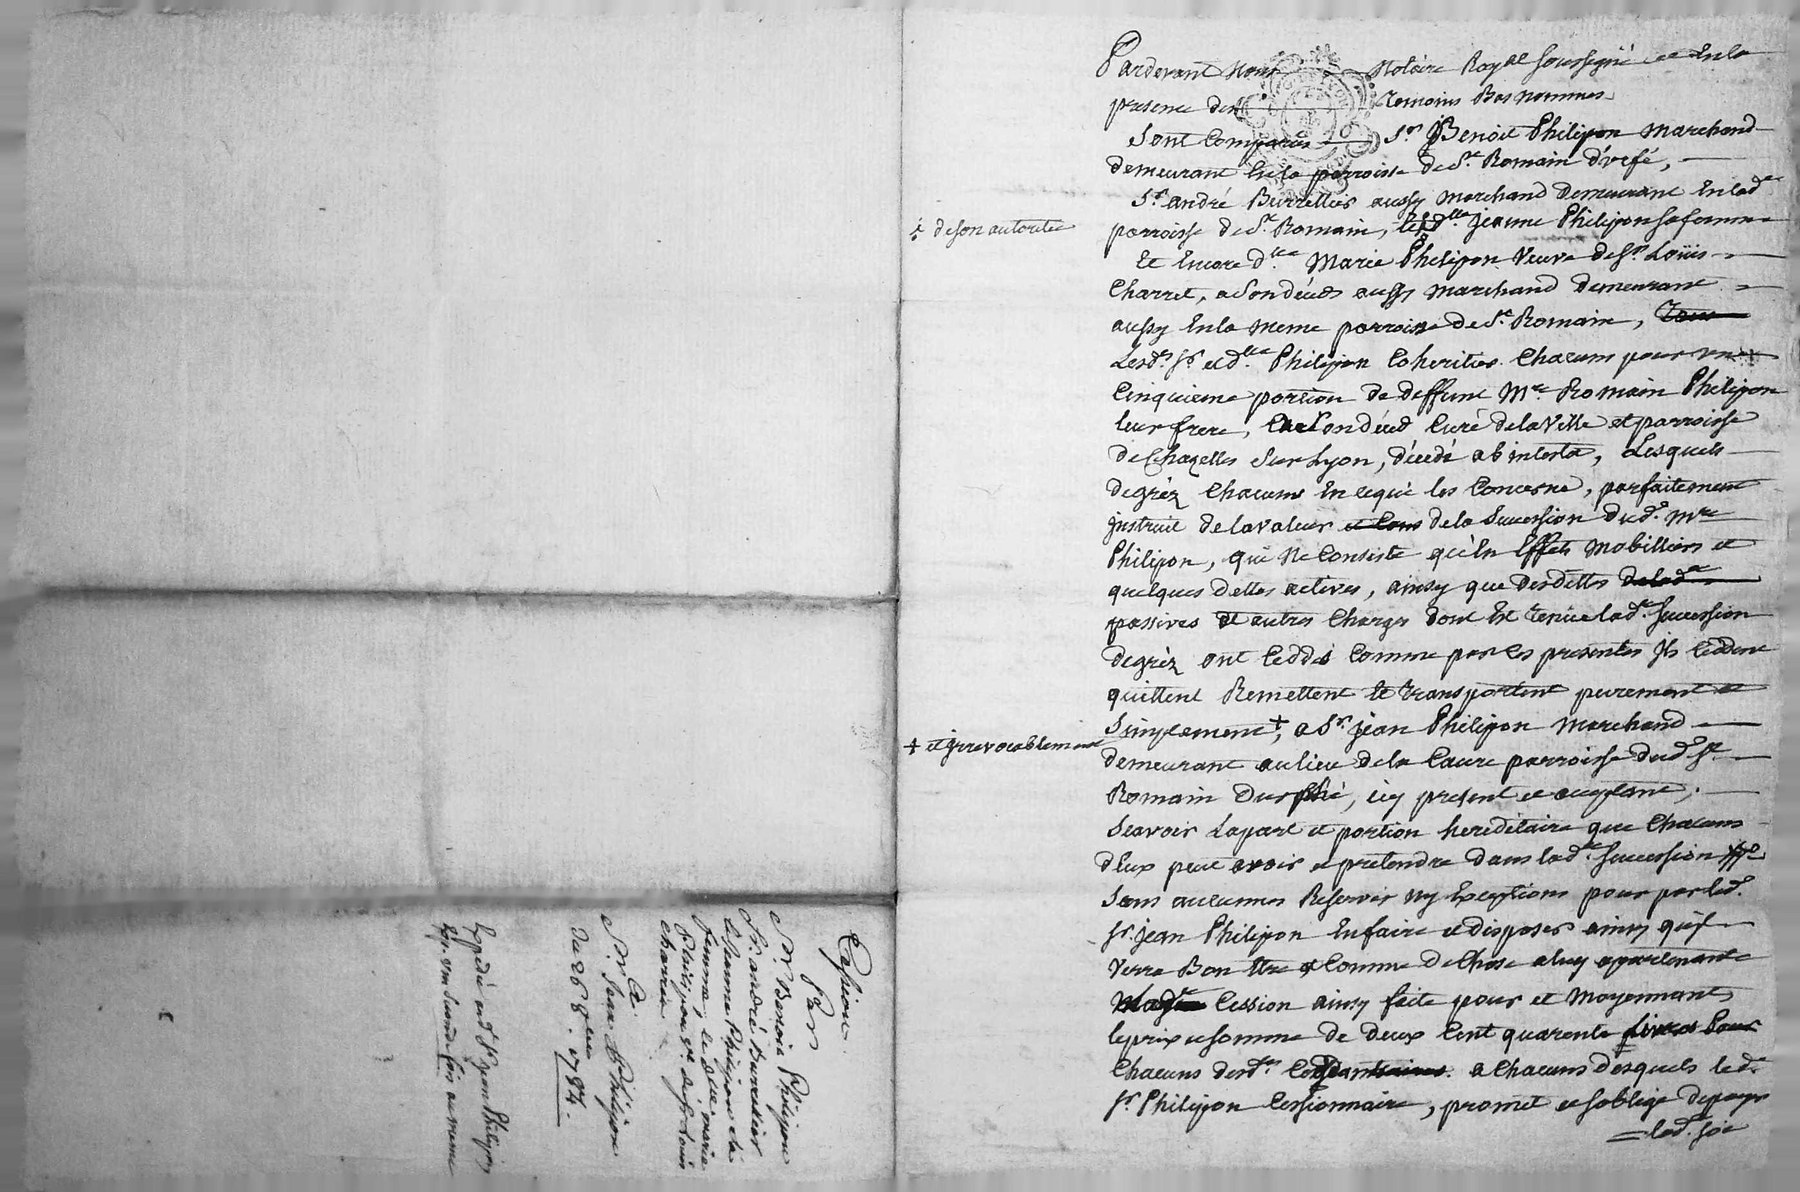 Pardevant Nous Notaire Royal soussigné et Enla
presence des Temoins Bas nommes
Sont Comparus Sr. Benoit Philipon Marchand
demeurant En la parroisse de St. Romain d'urfé,
Sr. andré Burrellier aussy Marchand Demeurant En lade
parroisse de St. Romain, dlle. jeanne Philipon sa femme
Et Encore dlle. Marie Philipon Veuve de Sr. Loüis
Charret, a Son décés aussy Marchand demeurant
aussy En la meme parroisse de St. Romain,
Lesds. Sr. et dlles Philipon Coheritiers Chacuns pour une
Cinquieme portion de deffunt Mre. Romain Philipon
leur frere, a Son décéd Curé de la Ville et parroisse
de Chazelles Sur Lyon, décédé ab intesta, Lesquels
de gréz Chacuns En ce qui les Concerne, parfaitement
jnstruit de la valeur de la Succession dud. Mre
Philipon, qui Ne Consiste qu'En Effets Mobilliers et
quelques dettes actives, ainsy que des dettes
passives et autres Charges dont Est tenue lade. Succession
de gréz ont Ceddés Comme par Ces presentes jls Ceddent
quittent Remettent Et transportent purement et
Simplement +, a Sr. jean Philipon Marchand
demeurant au lieu de la Caure parroisse dud. St.
Romain Durphé, icy present et acceptant,
Scavoir La part et portion hereditaire que Chacuns
d'Eux peut avoir et pretendre dans lade. Succession
Sans aucunnes Reserves ny Exceptions pour par led.
Sr. jean Philipon En faire et disposer ainsy qu'il
Verra Bon Etre et Comme de Chose a luy apartenante
Cession ainsy faite pour et Moyennant
le prix et somme de deux Cent quarente livres pour
Chacuns desds. a Chacuns desquels led.
Sr. Philipon Cessionnaire, promet et soblige de payer
lad. soe
de son autorité
+ et jrrevocablement
Cession
Par
Sr. Benoit Philipon
Sr. andré Burrellier
et jeanne Philipon sa
femme, et dlle. marie
Philipon ve. de sr. louis
Charret
a
Sr. Jean Philipon
Du 26 8bre 1784.
Expedié aud. Sr. jean Philipon